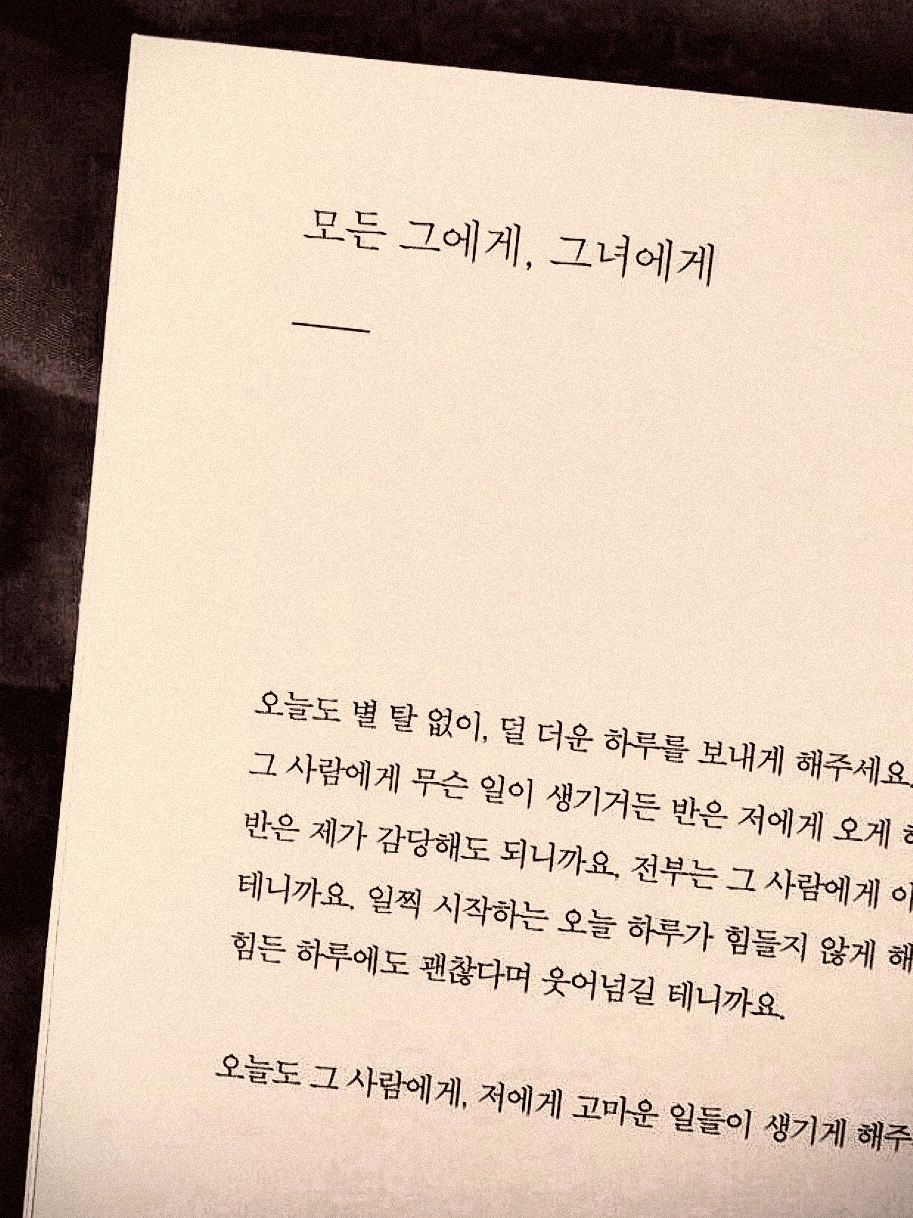 모든 그에게, 그녀에게
오늘도 별 탈 없이, 덜 더운 하루를 보내게 해주세요.
그 사람에게 무슨 일이 생기거든 반은 저에게 오게
반은 제가 감당해도 되니까요. 전부는 그 사람에게
테니까요. 일찍 시작하는 오늘 하루가 힘들지 않게 해
힘든 하루에도 괜찮다며 웃어넘길 테니까요.
오늘도 그 사람에게, 저에게 고마운 일들이 생기게 해주